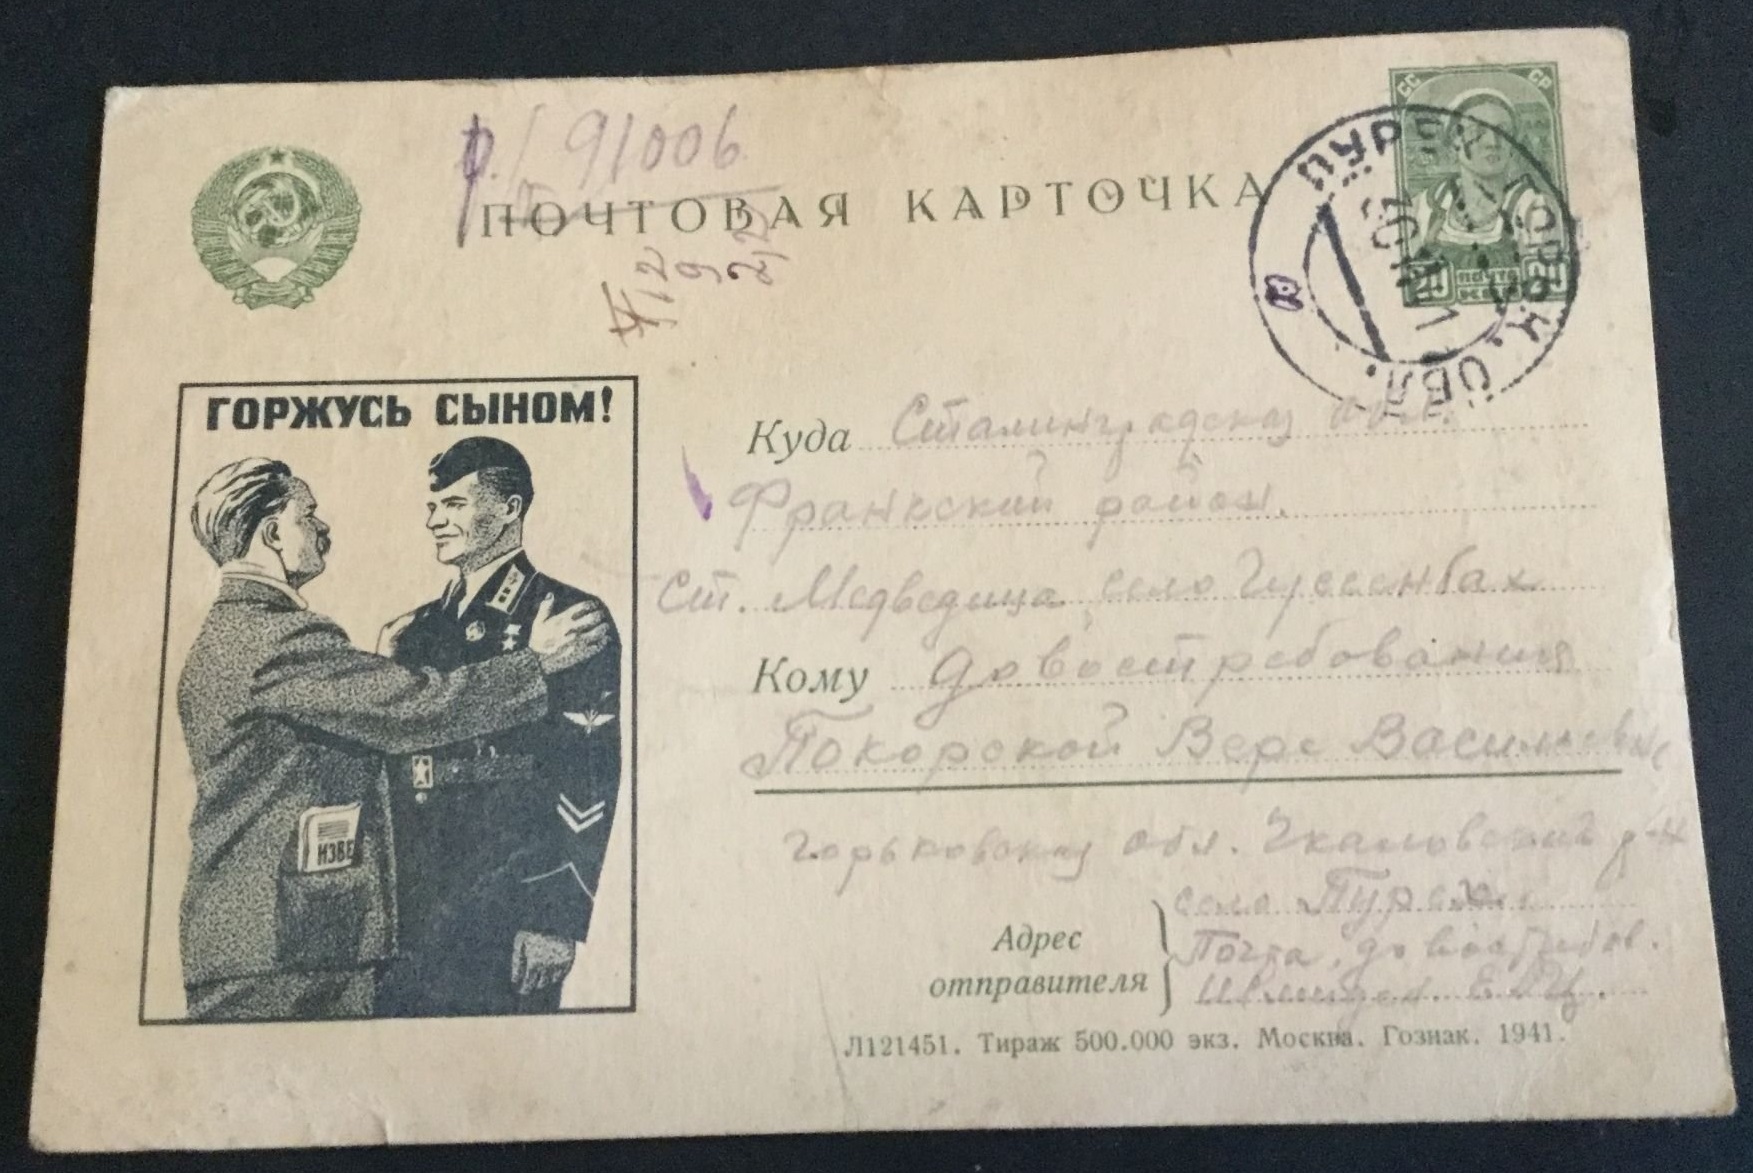 р./ 91006
ПОЧТОВАЯ КАРТОЧКА
СС СР
20 ПОЧТА 20
КОП
ПУРЕХ ГОРЬК. ОБЛ.
ГОРЖУСЬ СЫНОМ!
ИЗВЕ
Куда Сталинградская обл.
Франкский район.
Ст. Медведица, село Гуссенбах
Кому до востребования
Покорской Вере Васильевне
Горьковская обл. Чкаловский р-н
село Пурех.
Адрес отправителя
Почта, до востребов.
Л121451. Тираж 500.000 экз. Москва. Гознак. 1941.